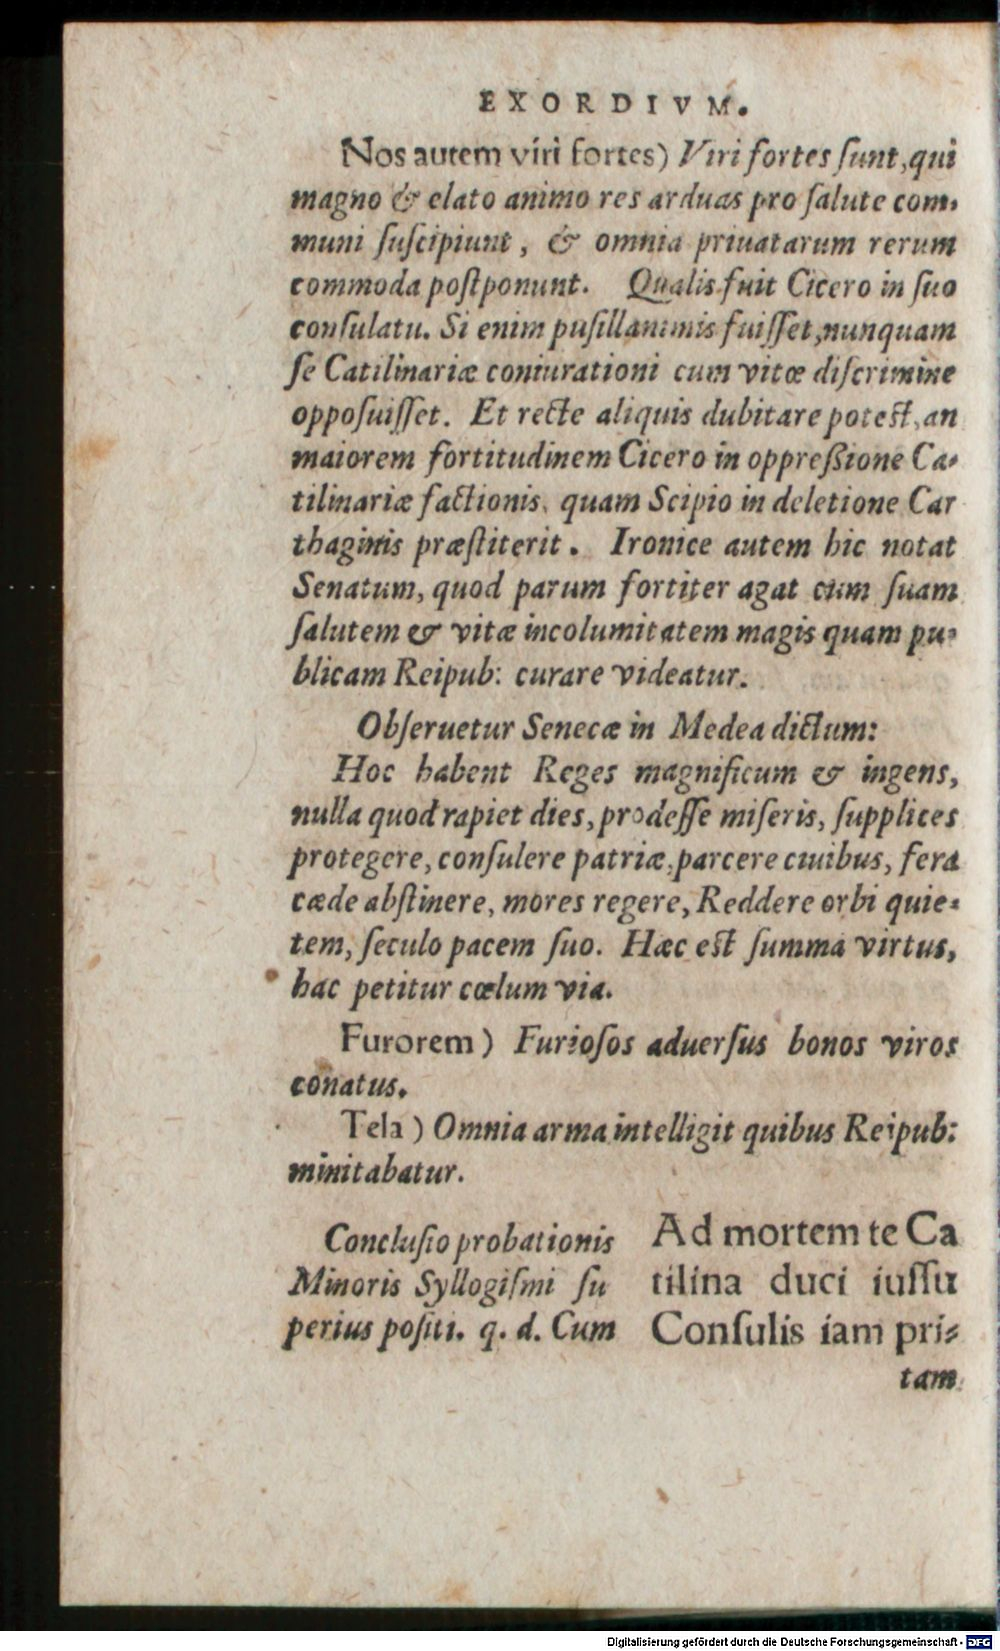 EXORDIVM.
Nos autem viri fortes) Viri fortes ſunt, qui
magno & elato animo res arduas pro ſalute com-
muni ſuſcipiunt, & omnia priuatarum rerum
commoda poſtponunt. Qualis fuit Cicero in ſuo
conſulatu. Si enim puſillanimis fuiſſet, nunquam
ſe Catilinariæ coniurationi cum vitæ diſcrimine
oppoſuiſſet. Et recte aliquis dubitare poteſt, an
maiorem fortitudinem Cicero in oppreßione Ca-
tilinariæ factionis, quam Scipio in deletione Car
thaginis præſtiterit. Ironice autem hic notat
Senatum, quod parum fortiter agat cum ſuam
ſalutem & vitæ incolumitatem magis quam pu-
blicam Reipub: curare videatur.
Obſeruetur Senecæ in Medea dictum:
Hoc habent Reges magnificum & ingens,
nulla quod rapiet dies, prodeſſe miſeris, ſupplices
protegere, conſulere patriæ, parcere ciuibus, fera
cæde abſtinere, mores regere, Reddere orbi quie-
tem, ſeculo pacem ſuo. Hæc eſt ſumma virtus,
hac petitur cœlum via.
Furorem) Furioſos aduerſus bonos viros
conatus.
Tela) Omnia arma intelligit quibus Reipub:
minitabatur.
Concluſio probationis
Minoris Syllogiſmi ſu
perius poſiti. q. d. Cum
Ad mortem te Ca
tilina duci iuſſu
Conſulis iam pri-
tam
Digitalisierung gefördert durch die Deutsche Forschungsgemeinschaft - DFG